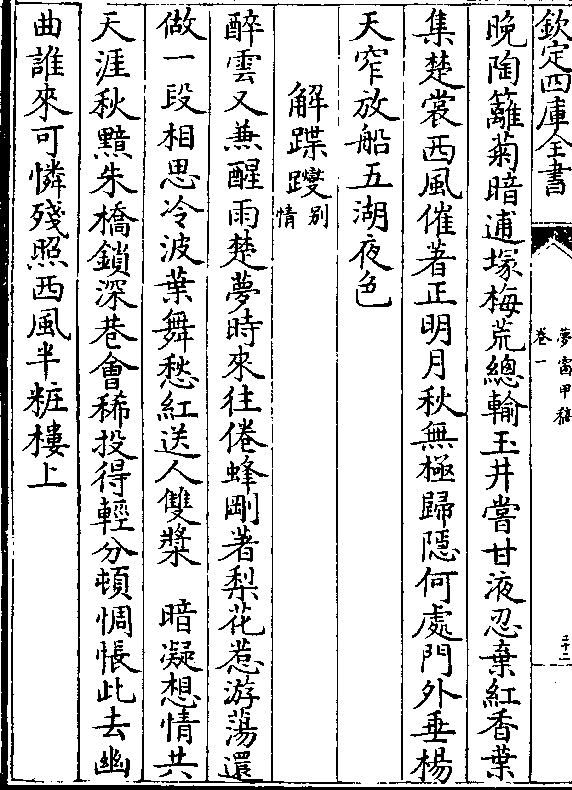 欽定四庫全書
夢窗甲稿
卷一
二十二
晚陶籬菊暗逋塚梅荒總輸玉井嘗甘液忍棄紅香葉
集楚裳西風催著正明月秋無極歸隱何處門外垂楊
天窄放船五湖夜色
解蹀躞别情
醉雲又兼醒雨楚夢時來往倦蜂剛著梨花惹游蕩還
做一段相思冷波葉舞愁紅送人雙槳　暗凝想情共
天涯秋黯朱橋鎖深巷會稀投得輕分頓惆悵此去幽
曲誰來可憐殘照西風半粧樓上